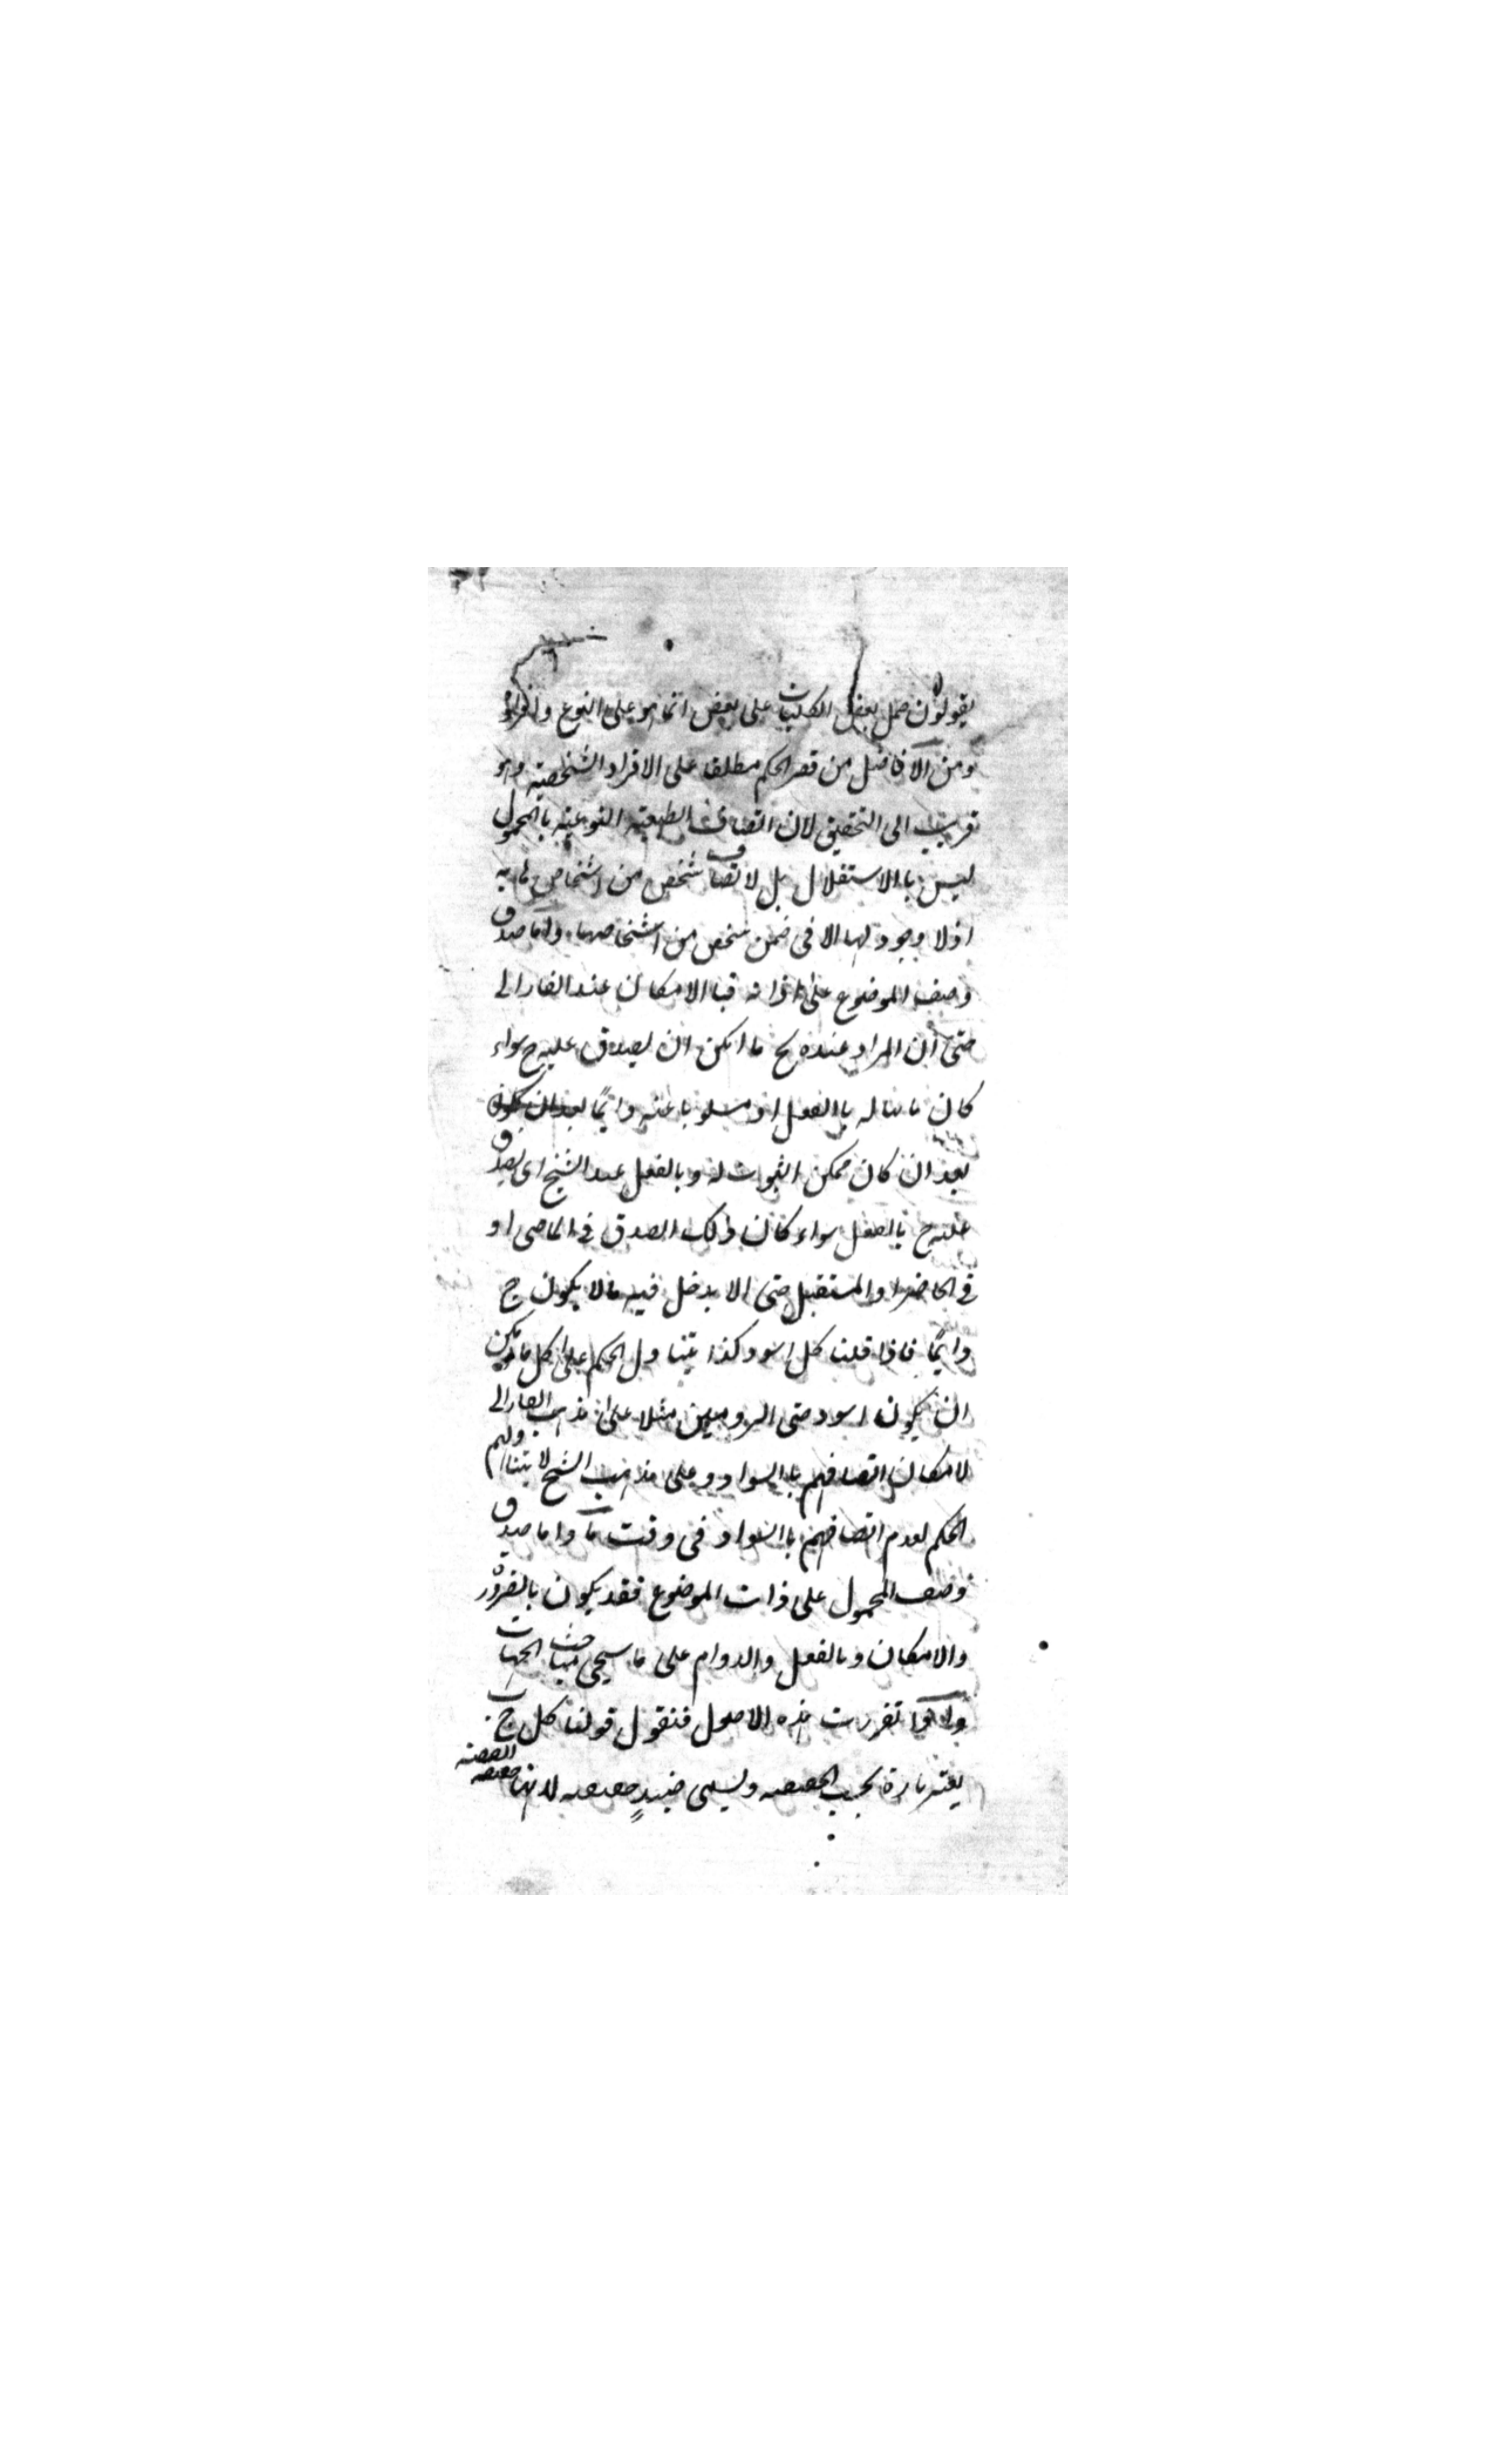 يقولون حمل بعض الكليات على بعض انما هو على النوع وافراده
ومن الافاضل من قصر الحكم مطلقا على الافراد الشخصية وهو
قريب الى التحقيق لان اتصاف الطبيعة النوعية بالمحمول
ليس باالاستقلال بل لاتصاف شخص من اشخاصها به
اذ لا وجود لها الا فى ضمن شخص من اشخاصها واما صدق
وصف الموضوع على ذاته فبالامكان عند الفارابى
حتى ان المراد عنده بج ما امكن ان يصدق عليه ج سواء
كان ثابتا له باالفعل او مسلوبا عنه دائمًا بعد ان يكون
بعد ان كان ممكن الثبوت له وبالفعل عند الشيخ اى يصدق
عليه ج بالفعل سواء كان ذلك الصدق فى الماضى او
فى الحاضر او المستقبل حتى لا يدخل فيه ما لا يكون ج
دائمًا فاذا قلنا كل اسود كذا يتناول الحكم على كل ما يمكن
ان يكون اسود حتى الروميين مثلا على مذهب الفارابى
لامكان اتصافهم باالسواد وعلى مذهب الشيخ لا يتناولهم
الحكم لعدم اتصافهم باالسواد فى وقت ما واما صدق
وصف المحمول على ذات الموضوع فقد يكون بالضرورة
والامكان وبالفعل والدوام على ما سيجى مباحث الجهات
واذا تقررت هذه الاصول فنقول قولنا كل ج ب
يعتبر تارة بحسب الحقيقه ويسمى حينئذٍ حقيقيه لانها حقيقه القضيه